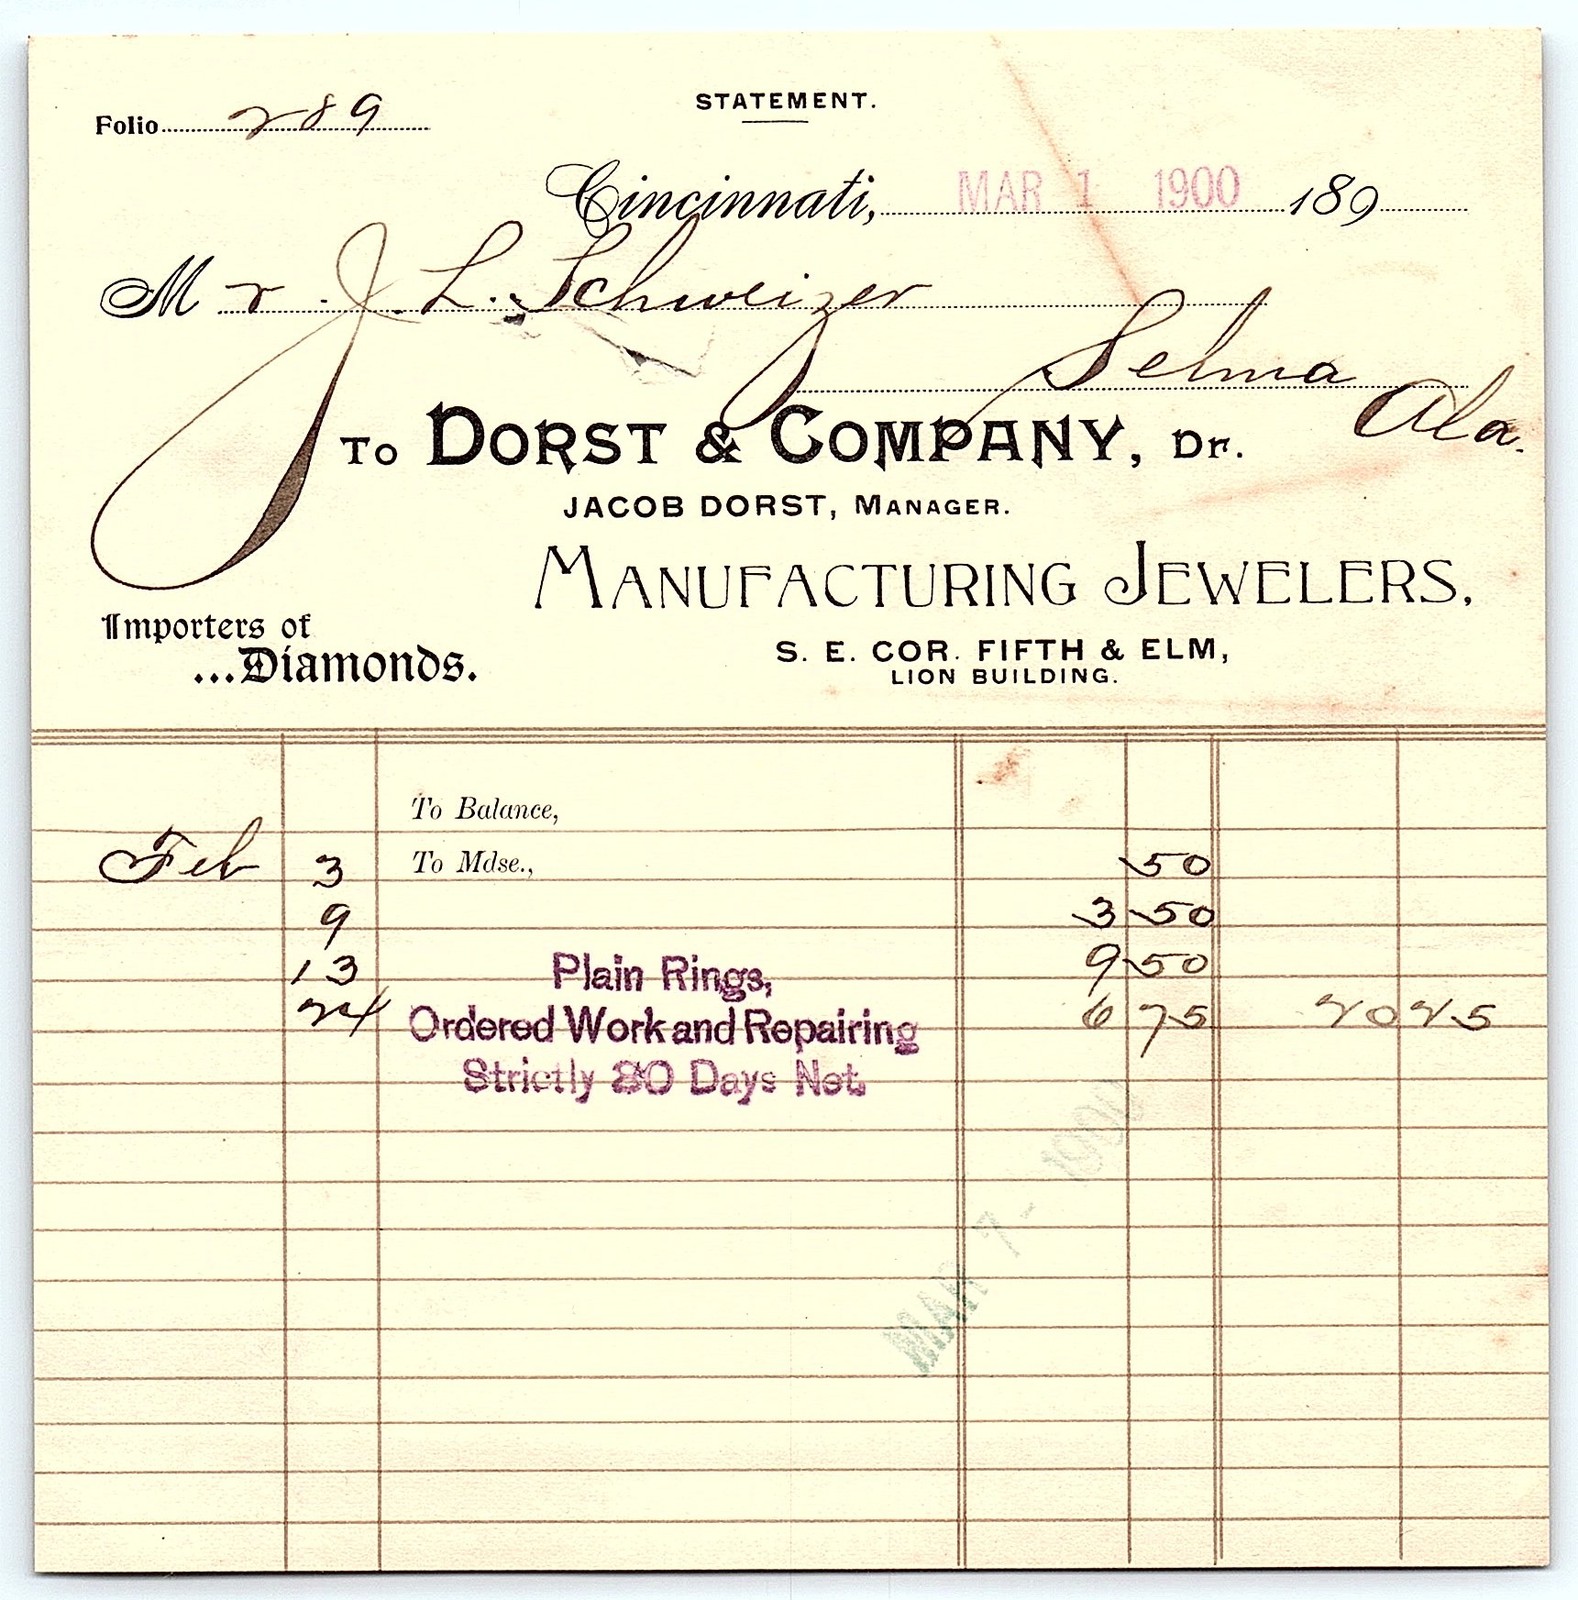 Folio 289
STATEMENT.
Cincinnati, MAR 1 1900 189
Mr. J. L. Schweizer
Selma Ala.
To DORST & COMPANY, Dr.
JACOB DORST, MANAGER.
MANUFACTURING JEWELERS,
Importers of
...Diamonds.
S. E. COR. FIFTH & ELM,
LION BUILDING.
To Balance,
Feb 3 To Mdse., 50
9 3 50
13 Plain Rings, 9 50
24 Ordered Work and Repairing 6 75 20 25
Strictly 30 Days Net.
MAR 7- 1900